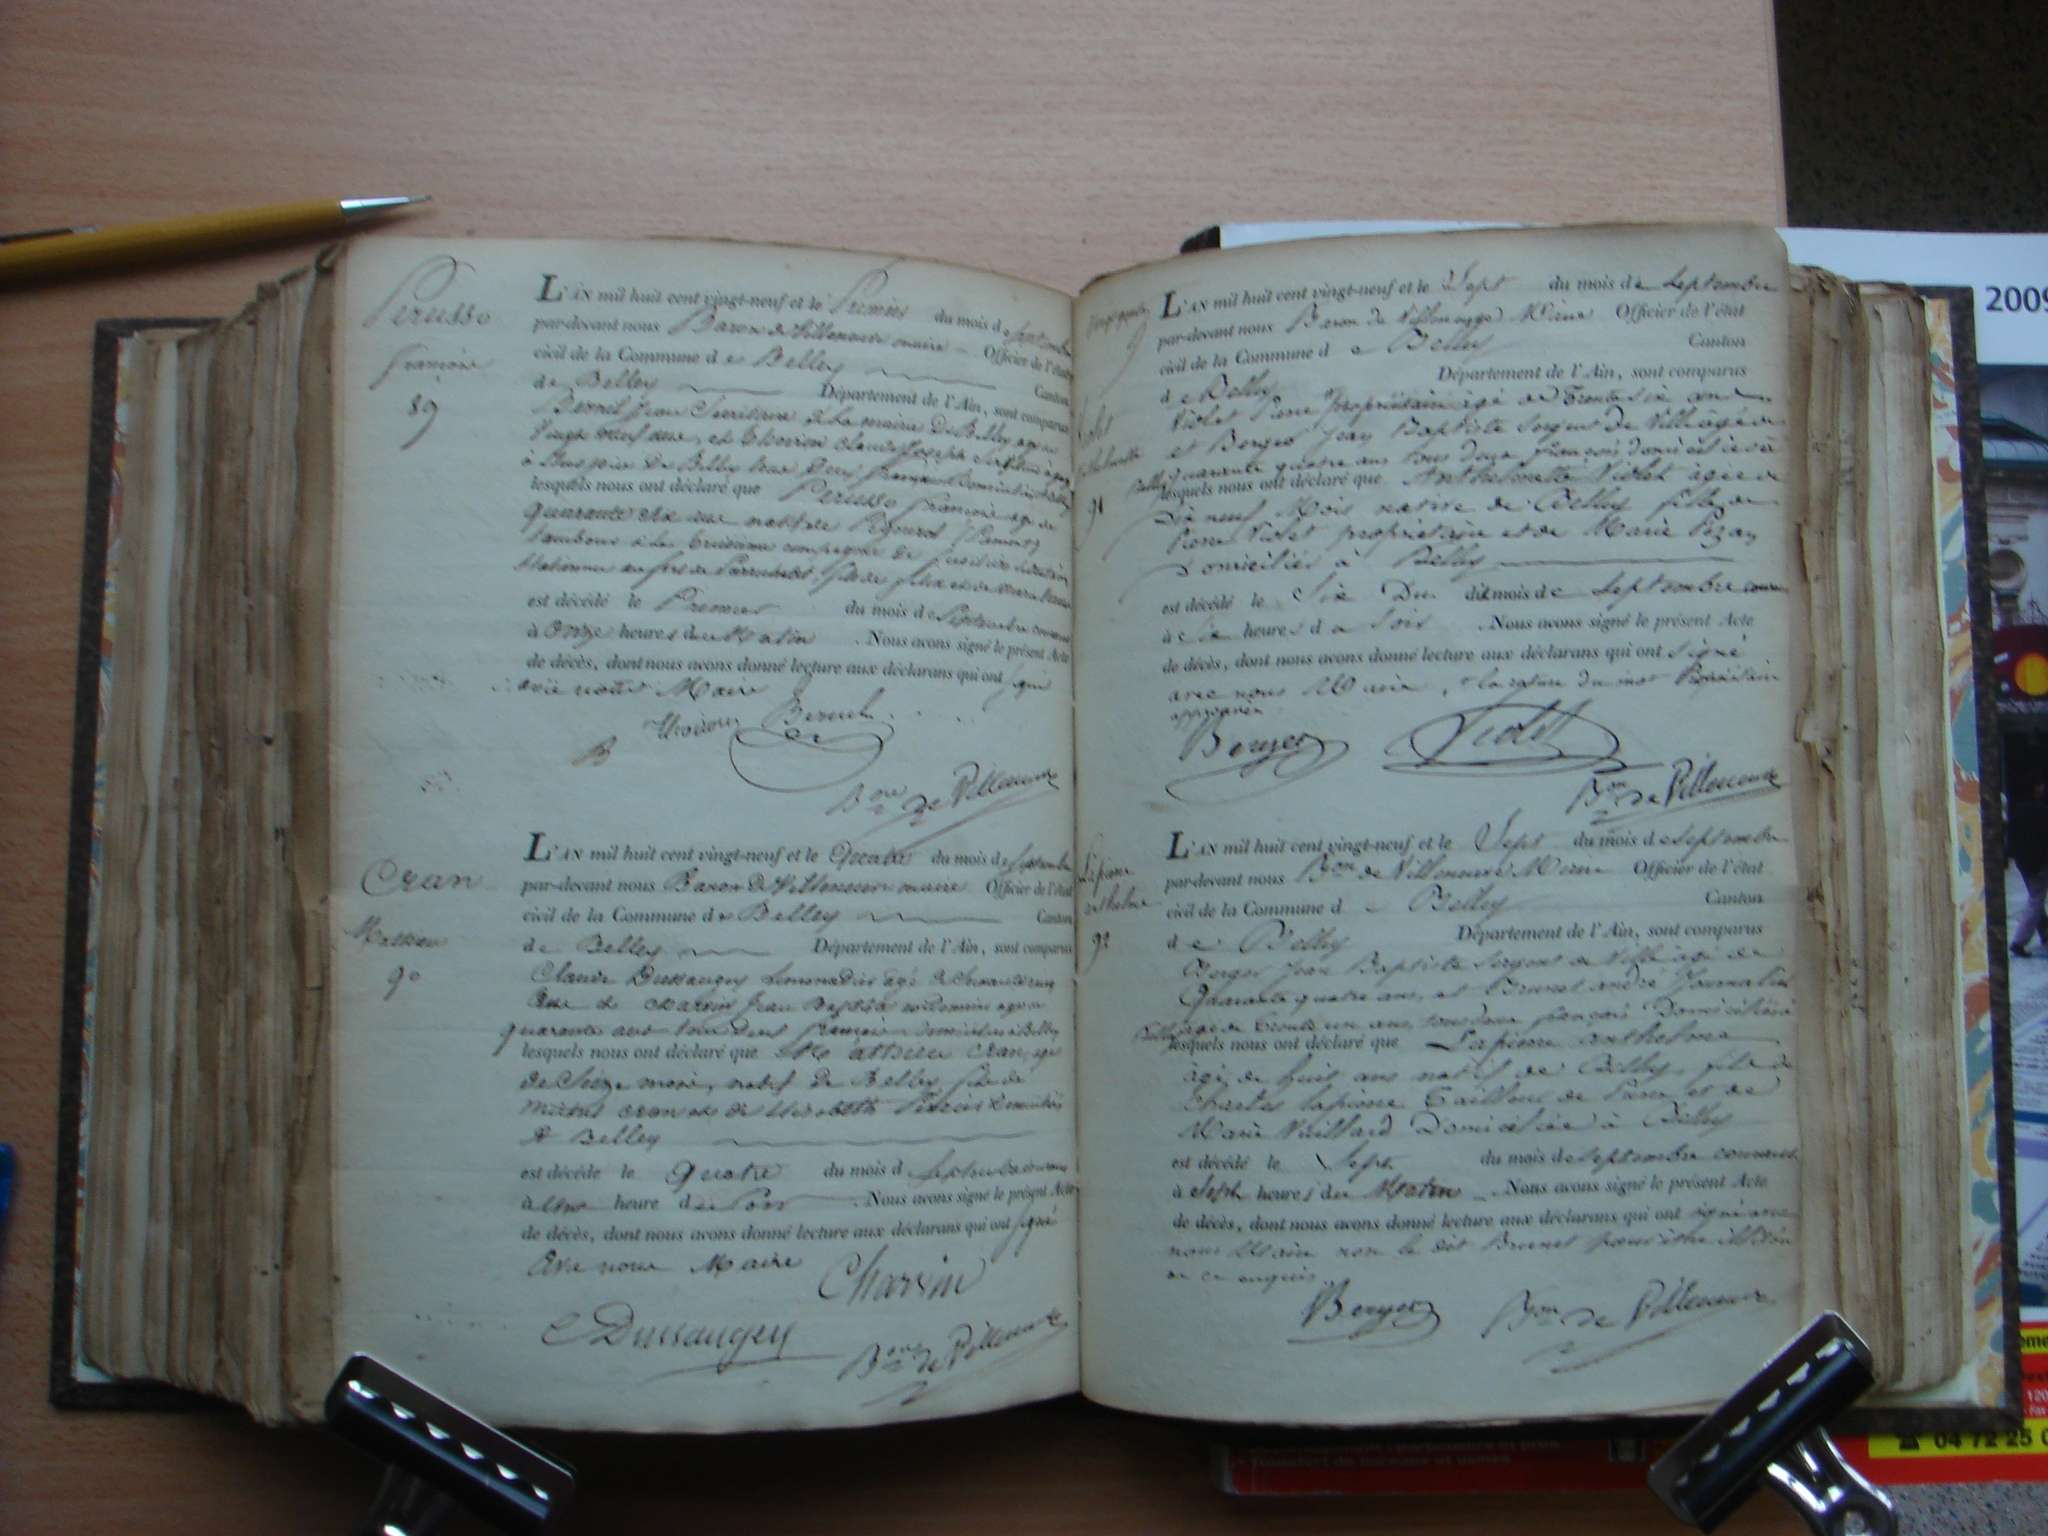 Perusse
françois
89
L'AN mil huit cent vingt-neuf et le Premier du mois de Septembre
par-devant nous Baron de Villeneuve maire Officier de l'état
civil de la Commune de Belley Canton
de Belley Département de l'Ain, sont comparus
jean Secrétaire à la mairie De Belley
Vingt neuf ans, et Claude Joseph
De Belley tous Deux français Domiciliés
lesquels nous ont déclaré que Perusse françois agé de
quarante six ans natif de (Piemont)
tambour à la troisième compagnie de fusiliers
Stationnée au fort de fils de
est décédé le Premier du mois de Septembre courant
à Onze heures du Matin . Nous avons signé le présent Acte
de décès, dont nous avons donné lecture aux déclarans qui ont signé
avec nous Maire
Bon de Villeneuve
Cran
Mathieu
90
L'AN mil huit cent vingt-neuf et le Quatre du mois de Septembre
par-devant nous Baron De Villeneuve maire Officier de l'état
civil de la Commune de Belley Canton
de Belley Département de l'Ain, sont comparus
Claude Dussaugey Limonadier âgé
ans et Charvin Jean Baptiste
quarante ans tous Deux français domiciliés à Belley
lesquels nous ont déclaré que Mathieu Cran, agé
de Seize mois, natif de Belley fils de
Cran et de Elizabeth domiciliés
A Belley
est décédé le Quatre du mois d Septembre courant
à une heure de Soir . Nous avons signé le présent Acte
de décès, dont nous avons donné lecture aux déclarans qui ont signé
Avec nous Maire Charvin
C Dussaugey Bon de Villeneuve
9
Violet
Anthelmette
91
L'AN mil huit cent vingt-neuf et le Sept du mois de Septembre
par-devant nous Baron de Villeneuve Maire Officier de l'état
civil de la Commune d e Belley Canton
d e Belley Département de l'Ain, sont comparus
Violet Pierre Propriétaire âgé de Trente six ans
et Berger Jean Baptiste Sergent de Ville âgé de
quarante quatre ans tous deux français domiciliés à
Belley lesquels nous ont déclaré que Anthelmette Violet âgée de
Dix neuf Mois native de Belley fille de
Pierre Violet propriétaire et de Marie
Domiciliés à Belley
est décédé le Six Du dit mois de Septembre courant
à Six heures d u Soir . Nous avons signé le présent Acte
de décès, dont nous avons donné lecture aux déclarans qui ont signé
avec nous Maire, la rature du mot Propriétaire
approuvée
Berger Violet
Bon de Villeneuve
Lapierre
anthelme
92
L'AN mil huit cent vingt-neuf et le Sept du mois de Septembre
par-devant nous Bon de Villeneuve Maire Officier de l'état
civil de la Commune d e Belley Canton
d e Belley Département de l'Ain, sont comparus
Berger Jean Baptiste Sergent de Ville âgé de
Quarante quatre ans, et Brunet andré Journalier
âgé de trente un ans, tous deux français Domiciliés à
Belley lesquels nous ont déclaré que Lapierre anthelme
âgé de huit ans natif de Belley, fils de
Charles lapierre Tailleur de Pierre et de
Marie Vuillard Domiciliés à Belley
est décédé le Sept du mois de Septembre courant
à Sept heures du Matin . Nous avons signé le présent Acte
de décès, dont nous avons donné lecture aux déclarans qui ont signé avec
nous Maire non le dit Brunet pour être illitéré
de ce enquis.
Berger Bon de Villeneuve
2009
04 72 25 0